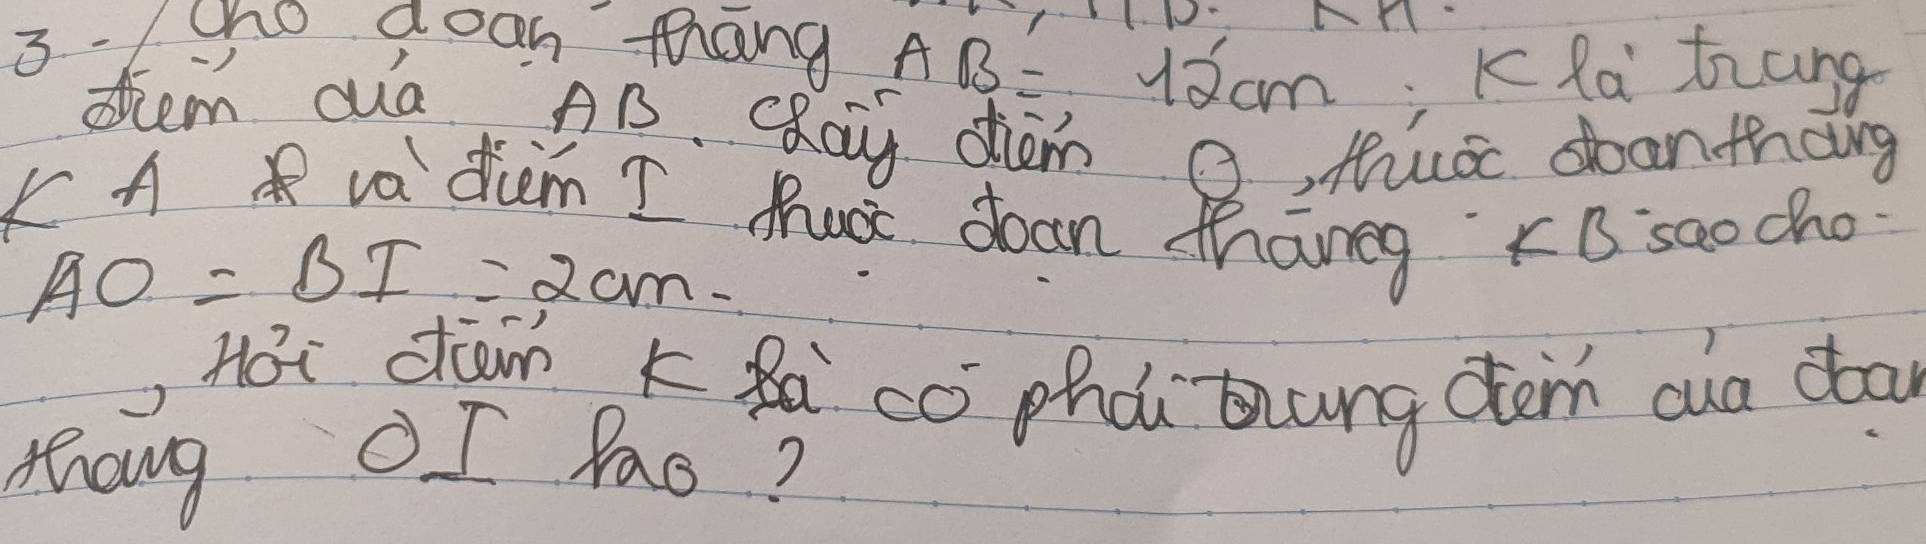 3 - Cho đoạn thẳng AB = 12cm. K là trung
điểm của AB. Lấy điểm O, thuộc đoan thẳng
KA và điểm I thuộc đoan thẳng KB sao cho
AO = BI = 2cm.
Hỏi điểm K là có phải trung điểm của đoạn
thẳng OI